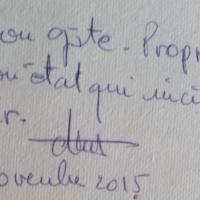 ou gîte. Propr
un état qui inci
r.
ovembre 2015